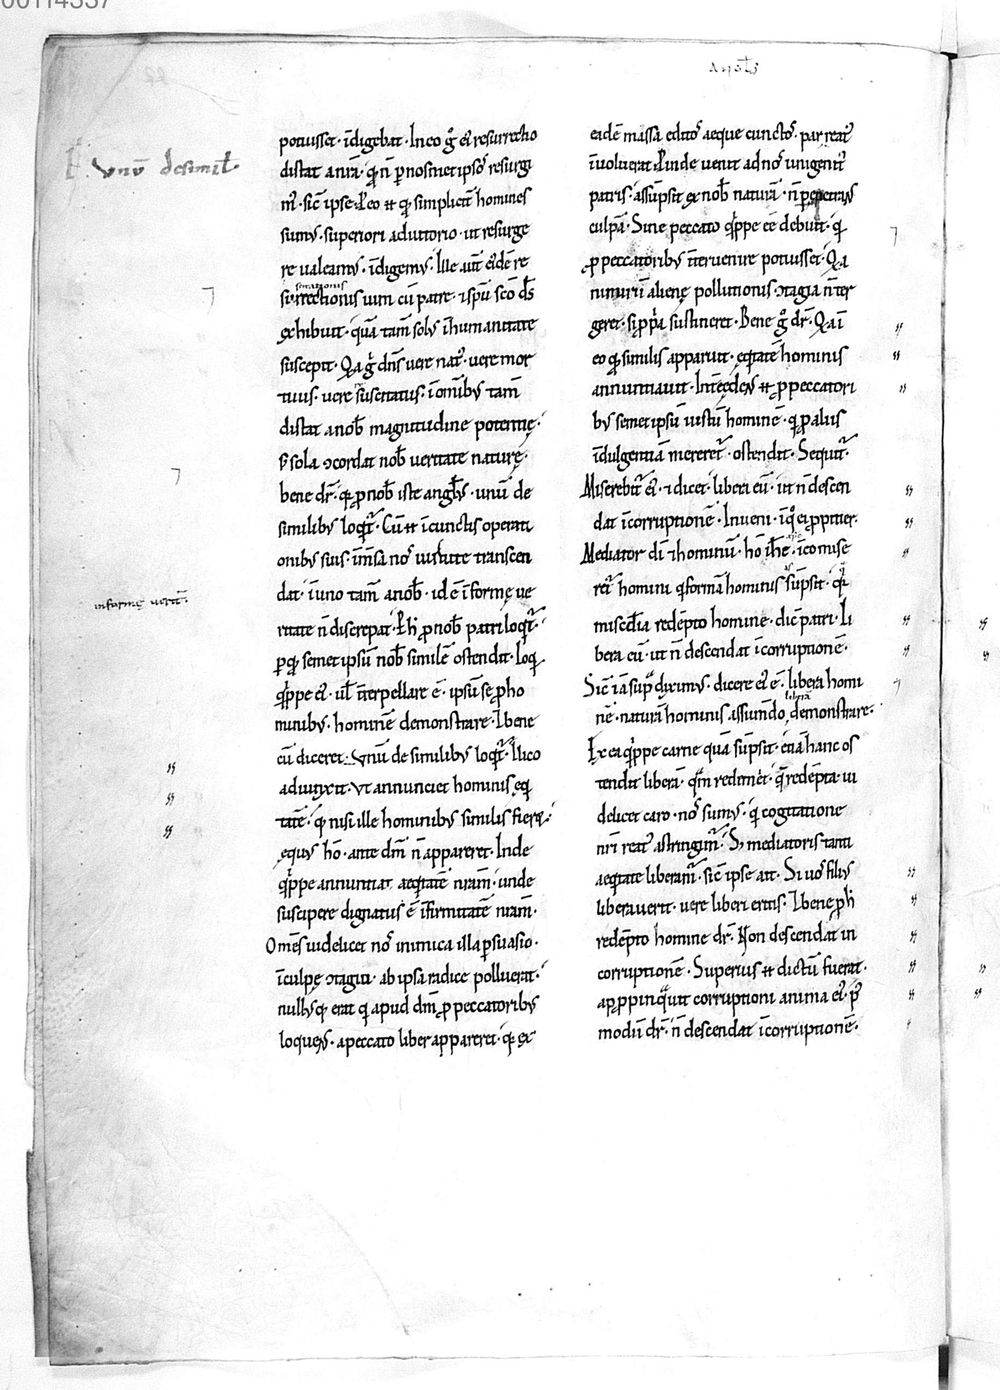 00114337
potuisset · īdigebat · In eo g̊ ei resurrectio
distat a nr̄a · q̄ n̄ p nosmet ipsos resurgi
m᷒ · sic̄ ipse · Eo ēt qd simplicit̄ homines
sumꝰ · superiori adiutorio · ut resurge
re valeamꝰ · īdigemꝰ · Ille aūt eidē re
surrectionis uim cū patre · ⁊ spū sc̄o d̄s
exhibuit · quā tam̄ solꝰ ī humanitate
suscepit · Q̄a g̊ dn̄s vere natꝰ · vere mor
tuus · vere suscitatus · ī om̄ibꝰ tam̄
distat a nob̄ magnitudine potentię ·
s; sola ↄcordat nob̄ veritate naturę ·
bene dr̄ · qd ꝓ nob̄ iste anglꝰ · unū de
similibꝰ loqt᷒ · Cū ēt ī cunctis operati
onibꝰ suis · īm̄sa nos virtute transcen
dat · ī uno tam̄ a nob̄ · id ē ī formę ve
ritate n̄ discrepat · P h̄ ꝓ nob̄ patri loqt᷒ ·
p qd semet ipsū nob̄ similē ostendit · Loq
qi̇ppe ei · ut̄ īterpellare ē · ipsū se ꝓ ho
minibꝰ · hominē demonstrare · Ubi bene
cū diceret · Vnū de similibꝰ loqt᷒ · Ilico
adiunxit · Vt annunciet hominis eq
tatē · qd nisi ille hominibꝰ similis fieret ·
equꝰ hō · ante dm̄ n̄ appareret · Inde
qi̇ppe annuntiat aeqtatē nr̄am · unde
suscipere dignatus ē īfirmitatē nr̄am ·
Om̄es videlicet nos inimica illa psuasio ·
ī culpę ↄtagiū · ab ipsa radice polluerat ·
nullꝰ qd erat q apud dm̄ ꝓ peccatoribꝰ
loquens · a peccato liber appareret · qd ex
eidē massa editos aeque cunctos · par reatꝰ
īvolverat · Proinde venit ad nos unigenitꝰ
patris · assūpsit ex nob̄ naturā · n̄ ppetrans
culpā · Sine peccato qi̇ppe eē debuit · q
ꝓ peccatoribꝰ ītervenire potuisset · Q̄a
nimirū alienę pollutionis ↄtagia n̄ ter
geret · si ꝓpria sustineret · Bene g̊ dr̄ · Q̄a ī
eo qd similis apparuit · eqtatē hominis
annuntiavit · Int̄cedens ēt ꝓ peccatori
bꝰ semet ipsū iustū hominē · qd ꝓ aliis
īdulgentiā mereret᷒ · ostendit · Sequit᷒ ·
Miserebit᷒ ei · ⁊ dicet · libera eū · ut n̄ descen
dat ī corruptionē · Inveni · ī qo ei ꝓpitier ·
Mediator dī ⁊ hominū · hō xp̄c ih̄c · ī eo mise
ret᷒ homini qd formā hominis assūpsit · q
misc̄dia redēpto homine · dic̄ patri · Li
bera eū · ut n̄ descendat ī corruptionē ·
Sic̄ iā sup diximꝰ · dicere ei ē · libera homi
nē · naturā hominis assumdo liberā demonstrare ·
Ex ea qi̇ppe carne quā sūpsit · etiā hanc os
tendit liberā · qm redimet · q̄ redēpta vi
delicet caro · nos sumꝰ · q cogitatione
nr̄i reatꝰ astringimᷣ · S; mediatoris tanti
aeqtate liberam᷒ · sic̄ ipse ait · Si vos filiꝰ
liberaverit · vere liberi eritis · Ubi bene p h̄
redēpto homine dr̄ · Non descendat in
corruptionē · Superius ēt dictū fuerat ·
aꝓpinqvit corruptioni anima eiꝰ · pꝰ
modū dr̄ · n̄ descendat ī corruptionē ·